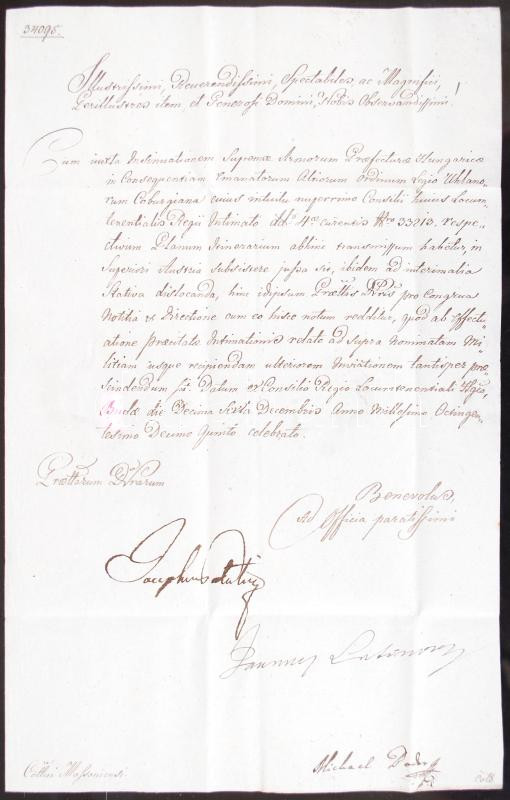 34095.
Illustrissimi, Reverendissimi, Spectabiles, ac Magnifici,
Perillustres item, et Generosi Domini, Nobis Observandissimi!
Cum iuxta Insinuationem Supremae Armorum Praefecturae Hungaricae
in Consequentiam emanatorum Altiorum Ordinum Legio Uhlano„
rum Coburgiana cuius intuitu nuperrimo Consilii huius Locum„
tenentialis Regii Intimato ddo 4ae currentis Nro 33213. respe„
ctivum Planum Itinerarium abhinc transmissum habetur, in
Superiori Austria subsistere jussa sit, ibidem ad interimalia
Stativa dislocanda, hinc idipsum Praettis Vris pro congrua
Notitia et Directione cum eo hisce notum redditur, quod ab effectu„
atione praecitatae Intimationis relate ad supra nominatam Mi„
litiam usque recipiendam ulteriorem Inviationem tantisper prae„
scindendum sit. Datum ex Consilio Regio Locumtenentiali Hgco,
Budae die Decima Sexta Decembris Anno Millesimo Octingen„
tesimo Decimo Quinto celebrato.
Praettarum Vrarum
Benevolus,
Ad Officia paratissimi
Josephus
Joannes
Michael
Cottui Mosoniensi